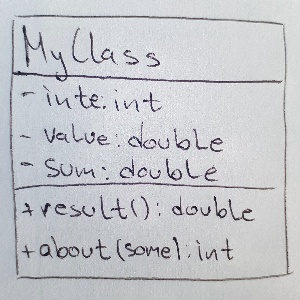 MyClass
- inte: int
- value: double
- sum: double
+ result(): double
+ about(some): int